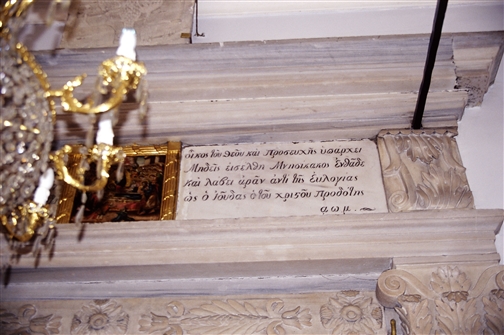 οἶκος τοῦ Θεοῦ καὶ Προσευχῆς ὑπαρχει
Μηδεὶς εἰσελθη Μησικακος ἐνθαδε
καὶ λαβει ἀρὰν ἀντὶ τῆς εὐλογίας
ὡς ὁ Ιουδας ὁ τοῦ χριστοῦ Προδότης
αωμ